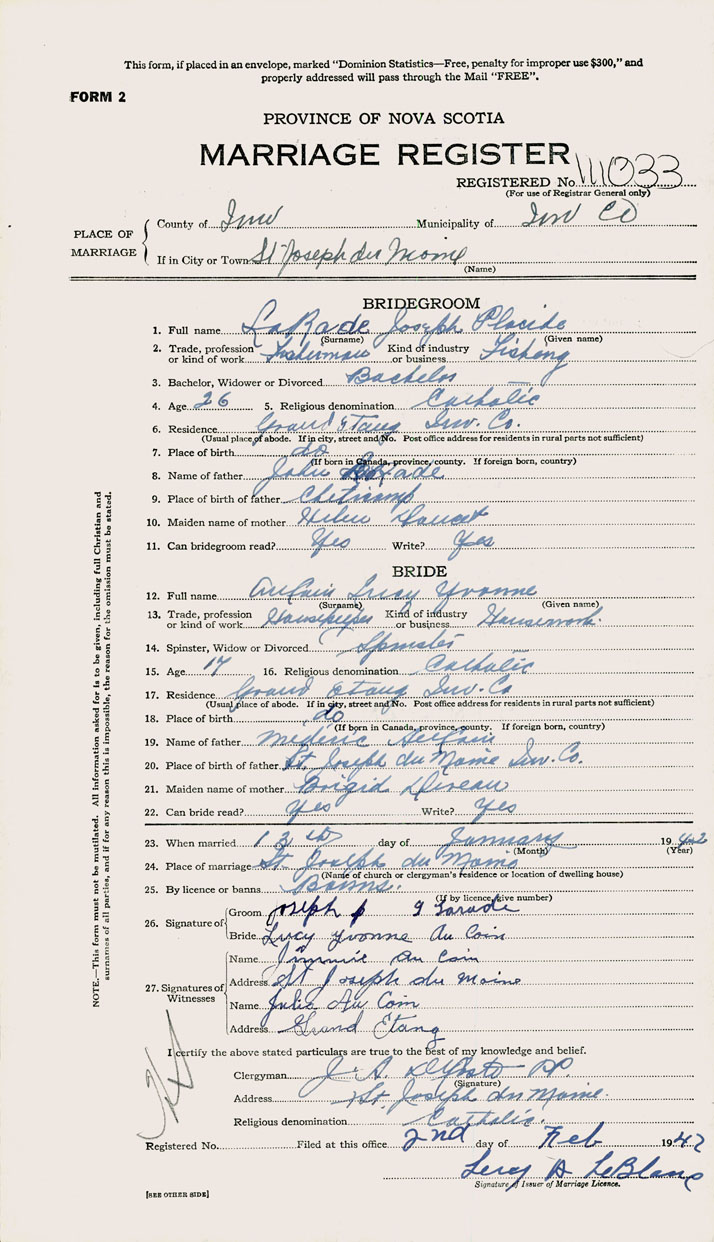 This form, if placed in an envelope, marked "Dominion Statistics—Free, penalty for improper use $300," and
properly addressed will pass through the Mail "FREE".
FORM 2
PROVINCE OF NOVA SCOTIA
MARRIAGE REGISTER
REGISTERED No. 111033
(For use of Registrar General only)
PLACE OF MARRIAGE
County of Inv Municipality of Inv Co
If in City or Town St Joseph du Moine
(Name)
BRIDEGROOM
1. Full name LaRade Joseph Placide
(Surname) (Given name)
2. Trade, profession or kind of work Fisherman Kind of industry or business Fishing
3. Bachelor, Widower or Divorced Bachelor
4. Age 26 5. Religious denomination Catholic
6. Residence Grand Etang Inv. Co.
(Usual place of abode. If in city, street and No. Post office address for residents in rural parts not sufficient)
7. Place of birth do
(If born in Canada, province, county. If foreign born, country)
8. Name of father John LaRade
9. Place of birth of father Cheticamp
10. Maiden name of mother Helen Doucet
11. Can bridegroom read? Yes Write? Yes
BRIDE
12. Full name AuCoin Lucy Yvonne
(Surname) (Given name)
13. Trade, profession or kind of work Housekeeper Kind of industry or business Housework.
14. Spinster, Widow or Divorced Spinster
15. Age 17 16. Religious denomination Catholic
17. Residence Grand Etang Inv. Co
(Usual place of abode. If in city, street and No. Post office address for residents in rural parts not sufficient)
18. Place of birth do
(If born in Canada, province, county. If foreign born, country)
19. Name of father Mederic AuCoin
20. Place of birth of father St. Joseph du Moine Inv. Co.
21. Maiden name of mother Brigid Diveau
22. Can bride read? Yes Write? Yes
23. When married 13th day of January 1942
(Month) (Year)
24. Place of marriage St. Joseph du Moine
(Name of church or clergyman's residence or location of dwelling house)
25. By licence or banns Banns.
(If by licence, give number)
26. Signature of
Groom Joseph p Larade
Bride Lucy Yvonne Au Coin
27. Signatures of Witnesses
Name Jimmie Au Coin
Address St Joseph du Moine
Name Julie Au Coin
Address Grand Etang
I certify the above stated particulars are true to the best of my knowledge and belief.
Clergyman J. A. P.P.
(Signature)
Address St. Joseph du Moine.
Religious denomination Catholic.
Registered No. Filed at this office 2nd day of Feb 1942
Leroy A LeBlanc
Signature of Issuer of Marriage Licence.
[SEE OTHER SIDE]
NOTE.—This form must not be mutilated. All information asked for is to be given, including full Christian and
surnames of all parties, and if for any reason this is impossible, the reason for the omission must be stated.